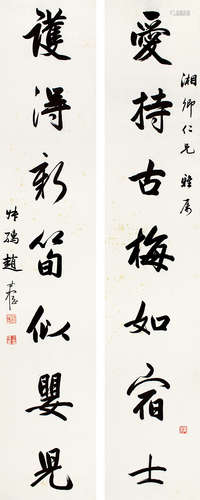 愛持古梅如宿士
湘卿仁兄雅属
護得新筍似嬰兒
趙